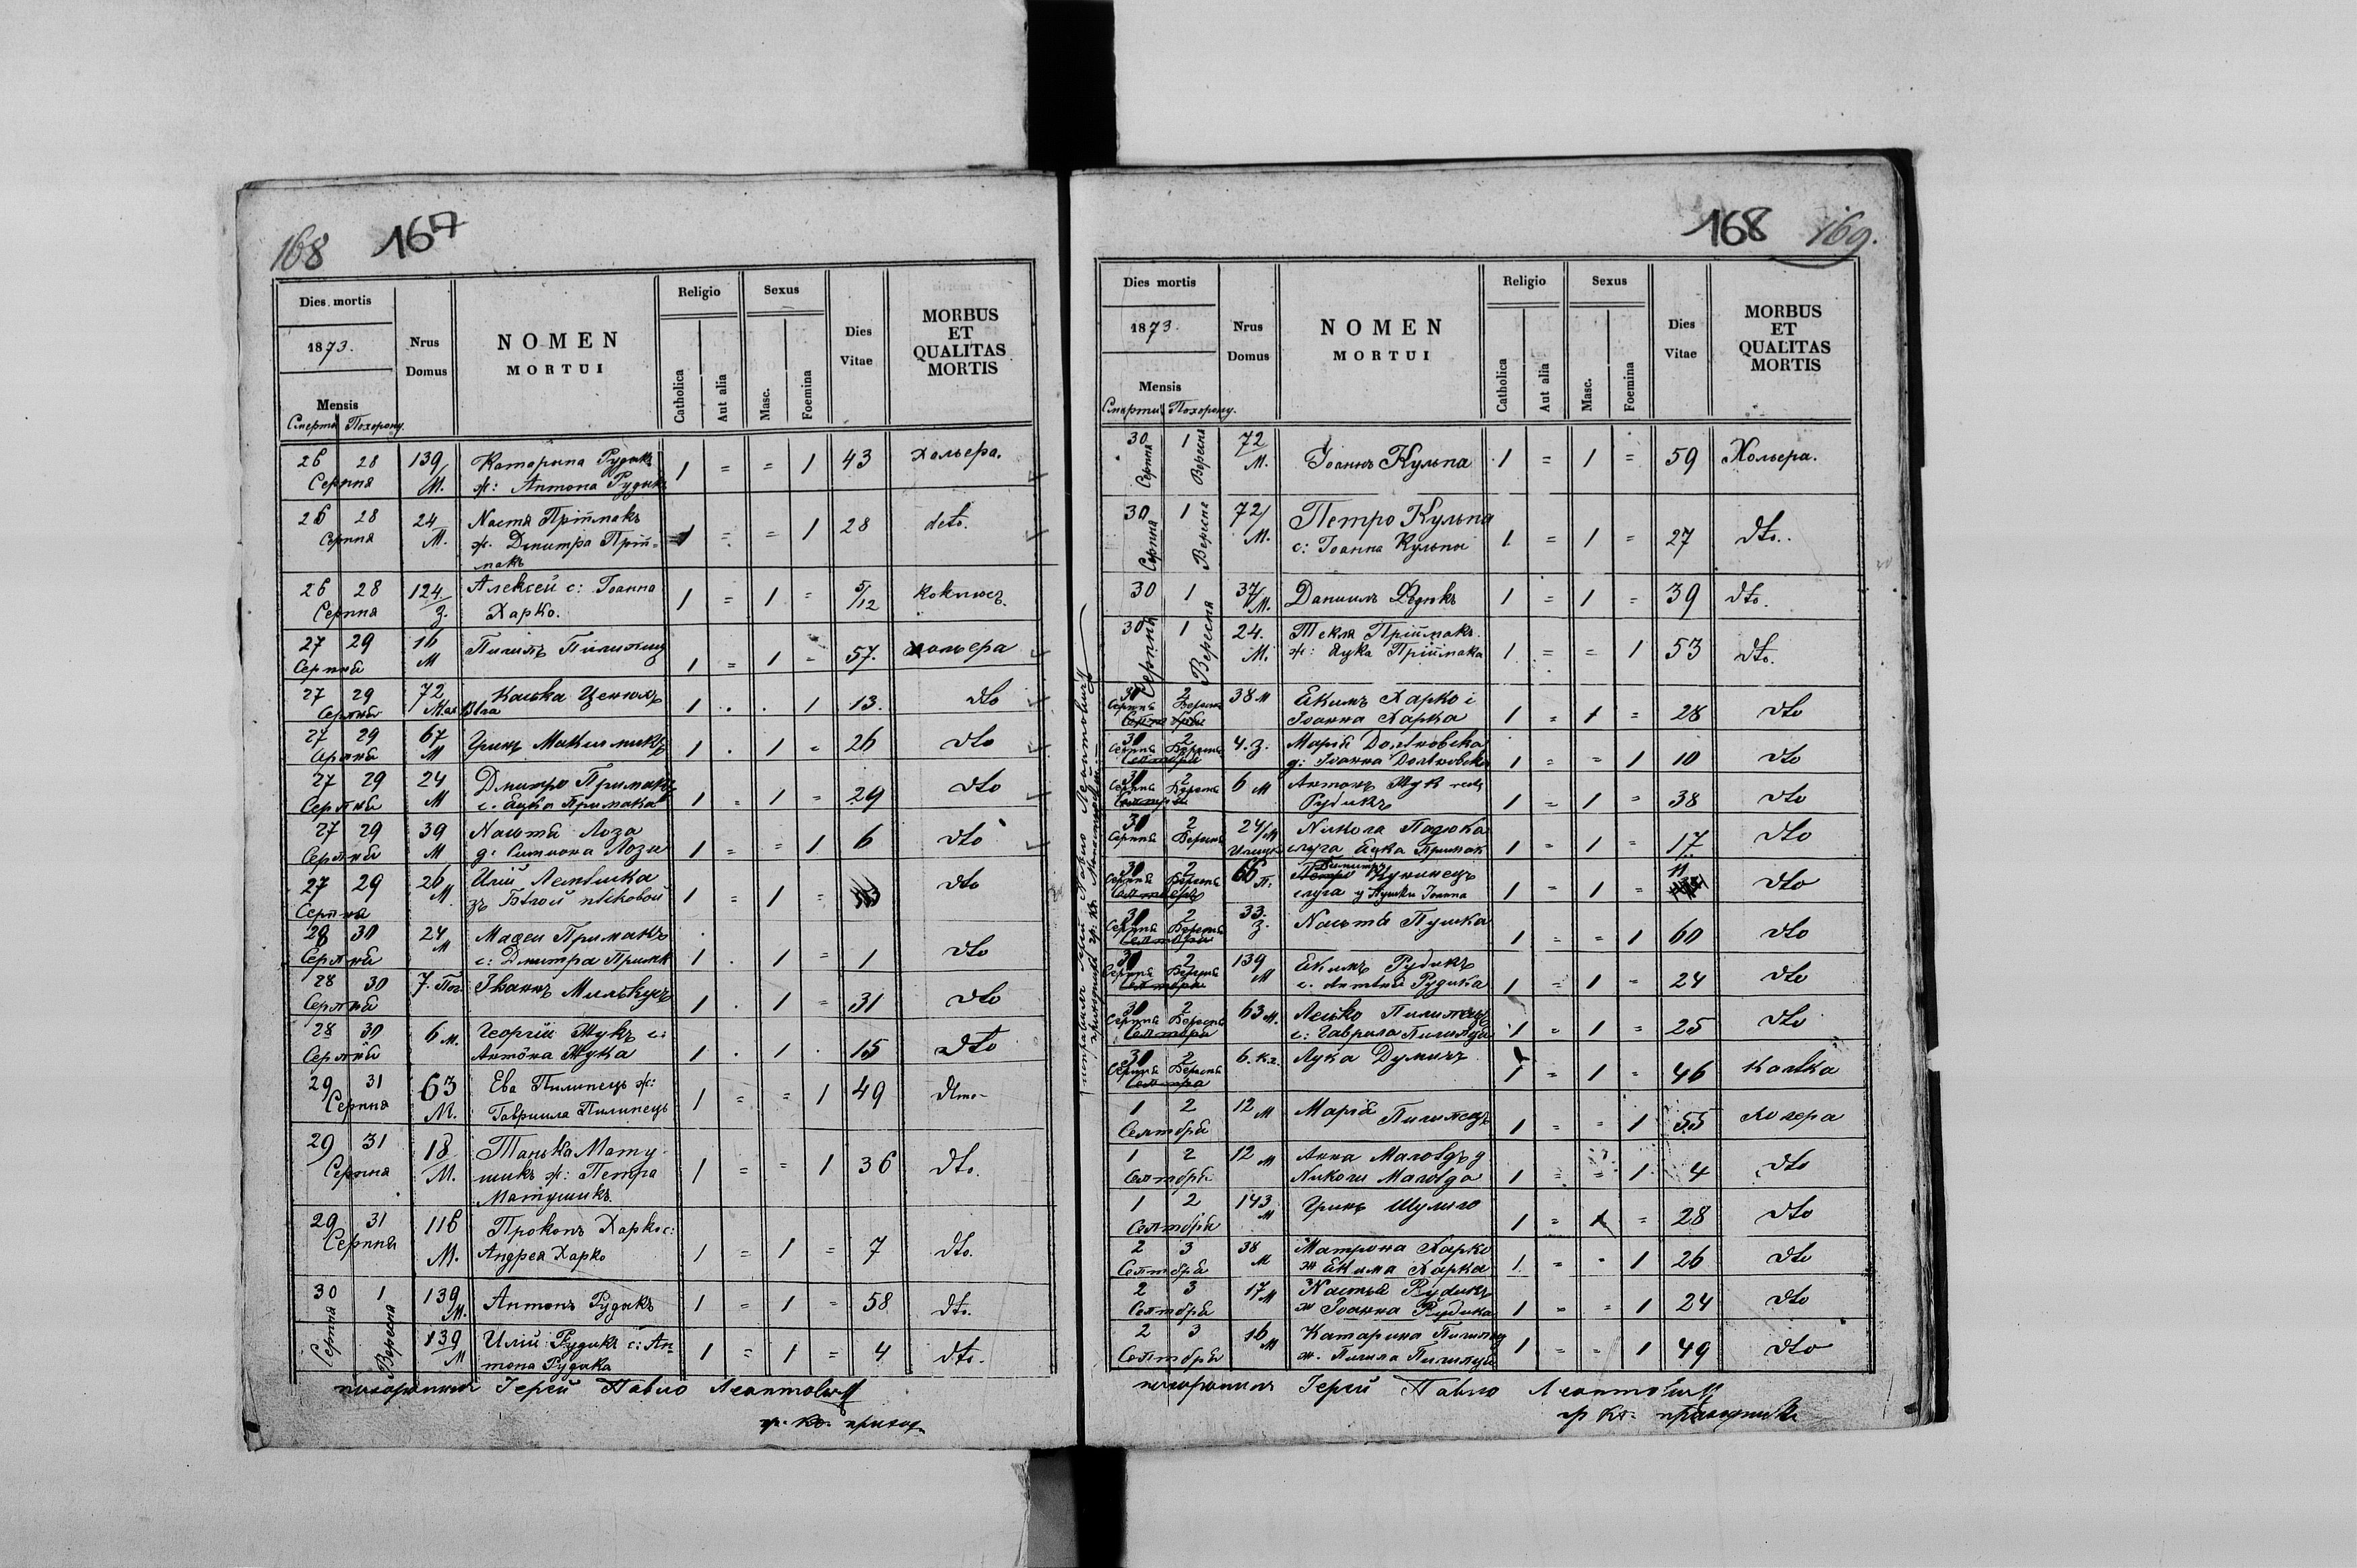 168 167
Dies mortis
1873.
Mensis
Смерти Похорону.
Nrus Domus
NOMEN MORTUI
Religio
Catholica
Aut alia
Sexus
Masc.
Foemina
Dies Vitae
MORBUS ET QUALITAS MORTIS
26 28 139 Катарина Рудикъ 1 = = 1 43 Хольера.
Серпня М. ж: Антона Рудикъ
26 28 24 Настя Пріймакъ 1 = = 1 28 deto.
Серпня М. ж. Дмитра Прій=
макъ
26 28 124 Алексей с: Іоанна 1 = 1 = 5/12 коклюсъ.
Серпня З. Харко.
27 29 16 Пилипъ Пилипец 1 = 1 = 57. хольера
Серпня М
27 29 72 Каська 1 . . 1 13. dto
Серпня
27 29 67 Гринь 1 . 1 = 26 dto
Серпня М
27 29 24 Дмитро Примакъ 1 = 1 = 29 dto
Серпня М с. Лука Примака
27 29 39 Настя Лоза 1 = = 1 6 dto
Серпня М д: Симеона Лози
27 29 26 М Илій 1 = 1 = dto
Серпня зъ
28 30 24 М Примакъ 1 . 1 = 1 dto
Серпня с: Дмитра Примак
28 30 7. Іванъ 1 . 1 = 31 dto
Серпня
28 30 6 М. Георгій Жукъ с: 1 . 1 . 15 dto
Серпня Антона Жука
29 31 63 Ева Пилипець ж: 1 = = 1 49 dtto-
Серпня М. Гавриила Пилипець
29 31 18 Танька Мату- 1 = = 1 36 dto.
Серпня М. шикъ ж: Петра
Матушикъ
29 31 116 Прокопъ Харко с: 1 = 1 = 7 dto.
Серпня М. Андрея Харко
30 1 139 М. Антонъ Рудикъ 1 = 1 = 58 dto.
Серпня Вересня
139 М Илій Рудикъ с: Ан= 1 = 1 = 4 dto.
тона Рудика
похоронилъ Іерей Павло Леонтович
гр. кт. приход.
168 169.
Dies mortis
1873.
Mensis
Смерти Похорону.
Nrus Domus
NOMEN MORTUI
Religio
Catholica
Aut alia
Sexus
Masc.
Foemina
Dies Vitae
MORBUS ET QUALITAS MORTIS
30 1 72 М. Іоаннъ Кульпа 1 = 1 = 59 Хольера.
Серпня Вересня
30 1 72 Петро Кульпа 1 = 1 = 27 dto.
Серпня Вересня М. с: Іоанна Кульпы
30 1 37 М. Даниилъ Федикъ 1 = 1 = 39 dto.
30 1 24. Текля Пріймакъ 1 = = 1 53 dto.
Серпня Вересня М. ж: Лука Пріймака
30 2 38 М Екимъ Харко с 1 = 1 = 28 dto
Серпня Вересня Іоанна Харка
30 2 4. З. Марія 1 = = 1 10 dto
Серпня Вересня д: Іоанна
30 2 6 М Антонъ Жук 1 = 1 = 38 dto
Серпня Вересня Рудикъ
30 2 24/М Никола Падюка 1 = 1 = 17 dto
Серпня Вересня слуга Лука Примак
30 2 66 П. 1 = 1 = 11 dto
Серпня Вересня слуга у Пушки Іоанна
30 2 33. З. Настя Пушка 1 = = 1 60 dto
Серпня Вересня
30 2 139 М Екимъ Рудикъ 1 = 1 = 24 dto
Серпня Вересня с. Рудика
30 2 63 М. Лешко Пилипець 1 = 1 = 25 dto
Серпня Вересня с: Гаврила Пилипця
30 2 6. Лука Думичъ 1 = 1 = 46
Серпня Вересня
1 2 12 М Марія Пилипецъ 1 = = 1 55 холера
Септября
1 2 12 М Анна 1 = = 1 4 dto
Септября Николи
1 2 143 М Гринь Шулиго 1 = 1 = 28 dto
Септября
2 3 38 М Матрона Харко 1 = = 1 26 dto
Септября ж Екима Харка
2 3 17 М Настя Рудикъ 1 = = 1 24 dto
Септября ж Іоанна Рудика
2 3 16 М Катарина Пилипец 1 = = 1 49 dto
Септября ж. Пилипа Пилипця
похоронилъ Іерей Павло Леонтович
гр кт. приходникъ